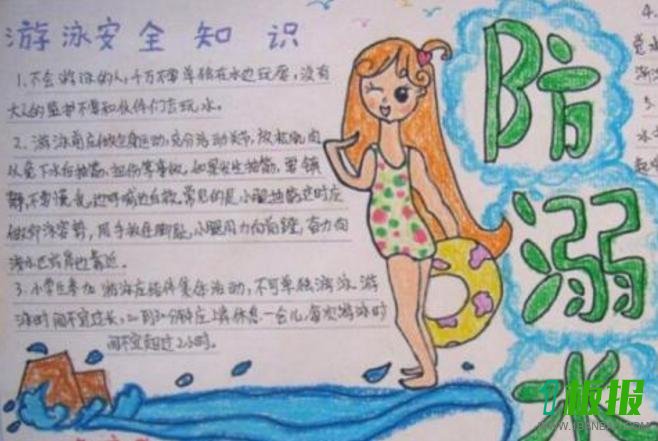 游泳安全知识
1.不会游泳的人,千万不要单独在水边玩度,没有
大人的监护不要和伙伴们去玩水。
2.游泳前应做全身运动,充分活动关节,放松肌肉
以免下水后抽筋、扭伤等事故。如果发生抽筋,要镇
静,不要慌乱,边呼喊边自救。常见的是小腿抽筋这时应
做仰泳姿势,用手扳住脚趾,小腿用力向前蹬,奋力向
浅水区或岸边靠近。
3.小学生参加游泳应结伴集体活动,不可单独游泳。游
泳时间不宜过长,20到30分钟应 休息一会儿,每次游泳时
间不宜超过2小时。
防
溺
水
板报